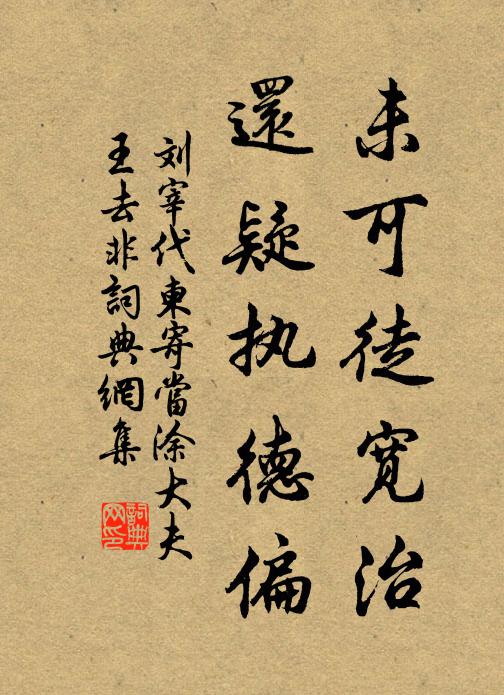 未可徒寛治
還疑执德偏
刘宰代東寄當涂大夫
王去非詞典網集
詞典网印